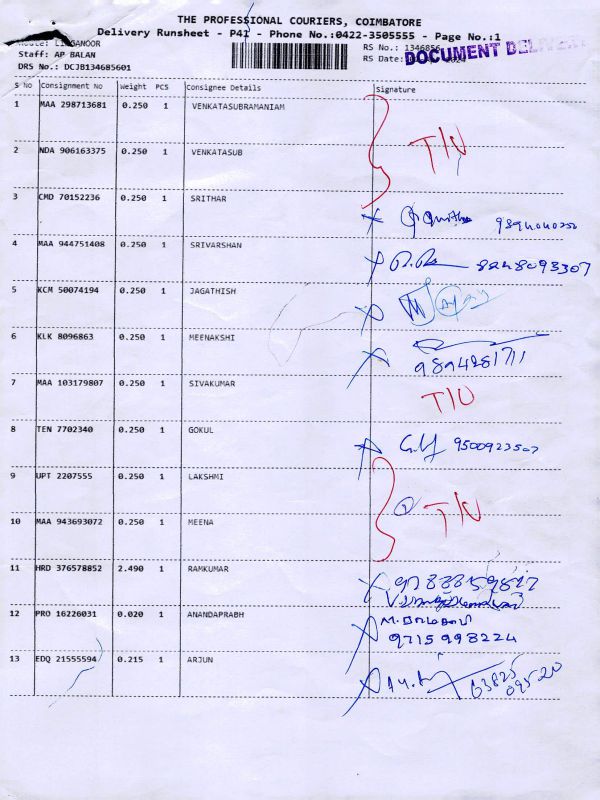 THE PROFESSIONAL COURIERS, COIMBATORE
Delivery Runsheet - P41 - Phone No.:0422-3505555 - Page No.:1
Staff: AP BALAN
RS No.: 1346856
DRS No.: DCJB134685601
RS Date:
DOCUMENT DELIVERY
S No Consignment No Weight PCS Consignee Details Signature
1 MAA 298713681 0.250 1 VENKATASUBRAMANIAM
T/U
2 NDA 906163375 0.250 1 VENKATASUB
3 CMD 70152236 0.250 1 SRITHAR
4 MAA 944751408 0.250 1 SRIVARSHAN 8248093307
5 KCM 50074194 0.250 1 JAGATHISH
6 KLK 8096863 0.250 1 MEENAKSHI 9894281711
7 MAA 103179807 0.250 1 SIVAKUMAR T/U
8 TEN 7702340 0.250 1 GOKUL 9500923507
9 UPT 2207555 0.250 1 LAKSHMI
T/U
10 MAA 943693072 0.250 1 MEENA
11 HRD 376578852 2.490 1 RAMKUMAR
12 PRO 16226031 0.020 1 ANANDAPRABH
9715998224
13 EDQ 21555594 0.215 1 ARJUN 63825
09520